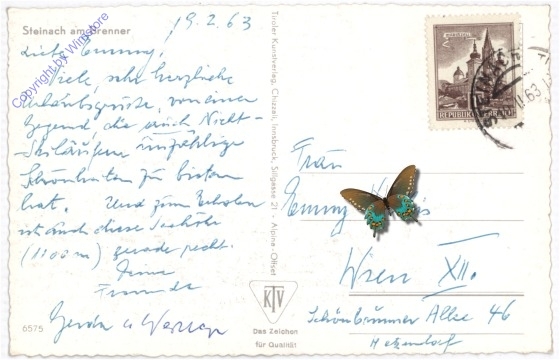 Steinach am Brenner
19.2.63
Copyright by Winstore
Liebe Emmy!
Viele, sehr herzliche
Urlaubsgrüße, von einer
Gegend, die auch Nicht-
Skiläufern unzählige
Schönheiten zu bieten
hat. Und zum Erholen
ist auch diese Seehöhe
(1100m) gerade recht.
Deine
Freunde
Gerda u
6575
Tiroler Kunstverlag, Chizzali, Innsbruck, Sillgasse 21 • Alpina-Offset
KTV
Das Zeichen
für Qualität
2
REPUBLIK
63
Frau
Emmy
Wien XII.
Schönbrunner Allee 46
Hetzendorf